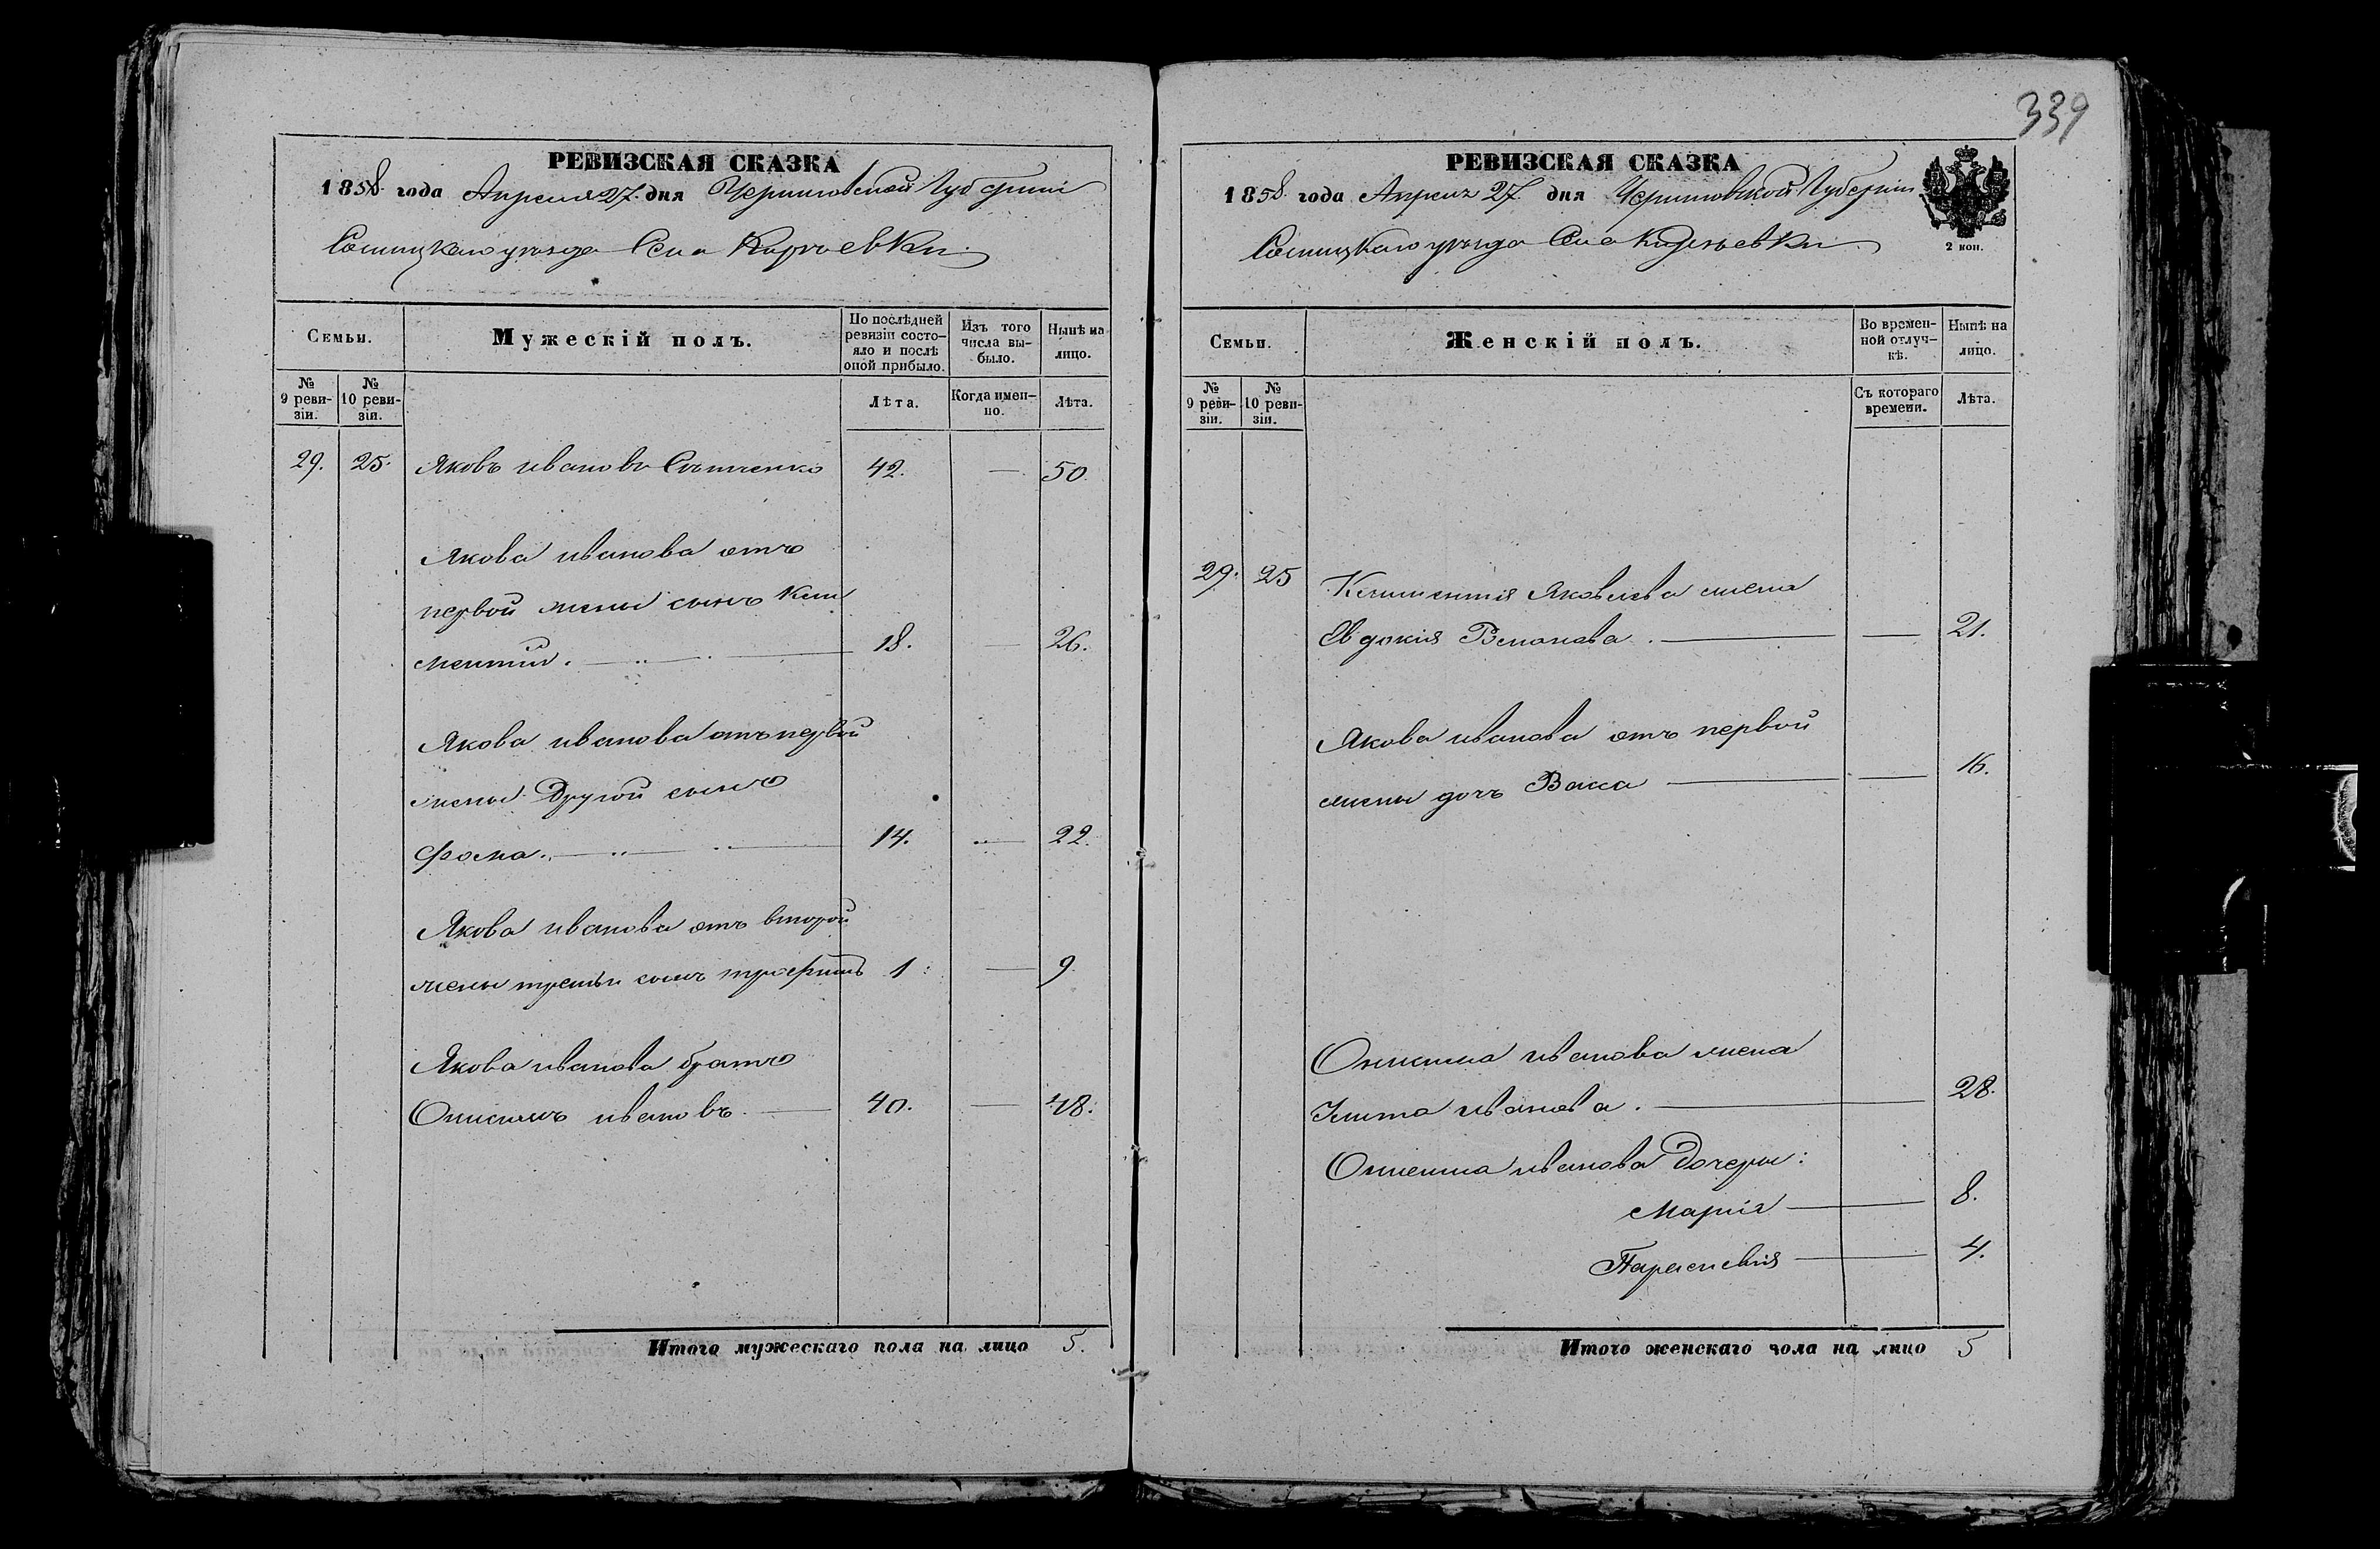 339
РЕВИЗСКАЯ СКАЗКА
1858 года Апреля 27. дня Черниговской Губерніи
Сосницкаго уезда Села
Семьи.
Мужескій полъ.
По послѣдней ревизіи состояло и послѣ оной прибыло.
Изъ того числа выбыло.
Нынѣ на лицо.
№ 9 ревизіи.
№ 10 ревизіи.
Лѣта.
Когда именно.
Лѣта.
29. 25. Яковъ Ивановъ 42. — 50.
Якова Иванова отъ
первой жены сынъ Кли
ментий. — 18. — 26.
Якова Иванова отъ первой
жены Другой сынъ
Фома. — 14. — 22.
Якова Иванова отъ второй
жены третьи сынъ 1 — 9
Якова Иванова братъ
Онисимъ Ивановъ. — 40. — 48.
Итого мужескаго пола на лицо 5.
РЕВИЗСКАЯ СКАЗКА
1858. года Апреля 27. дня Черниговской Губерніи
2 коп.
Сосницкаго уезда Села
Семьи.
Женскій полъ.
Во временной отлучкѣ.
Нынѣ на лицо.
№ 9 ревизіи.
№ 10 ревизіи.
Съ котораго времени.
Лѣта.
29. 25 Климентия Яковлева жена
Евдокия — — 21.
Якова Иванова отъ первой
жены дочь Васса — — 16.
Онисима Иванова жена
Улита Иванова. — 28.
Онисима Иванова Дочеры:
Мария — 8.
Параскевия — 4.
Итого женскаго пола на лицо 5